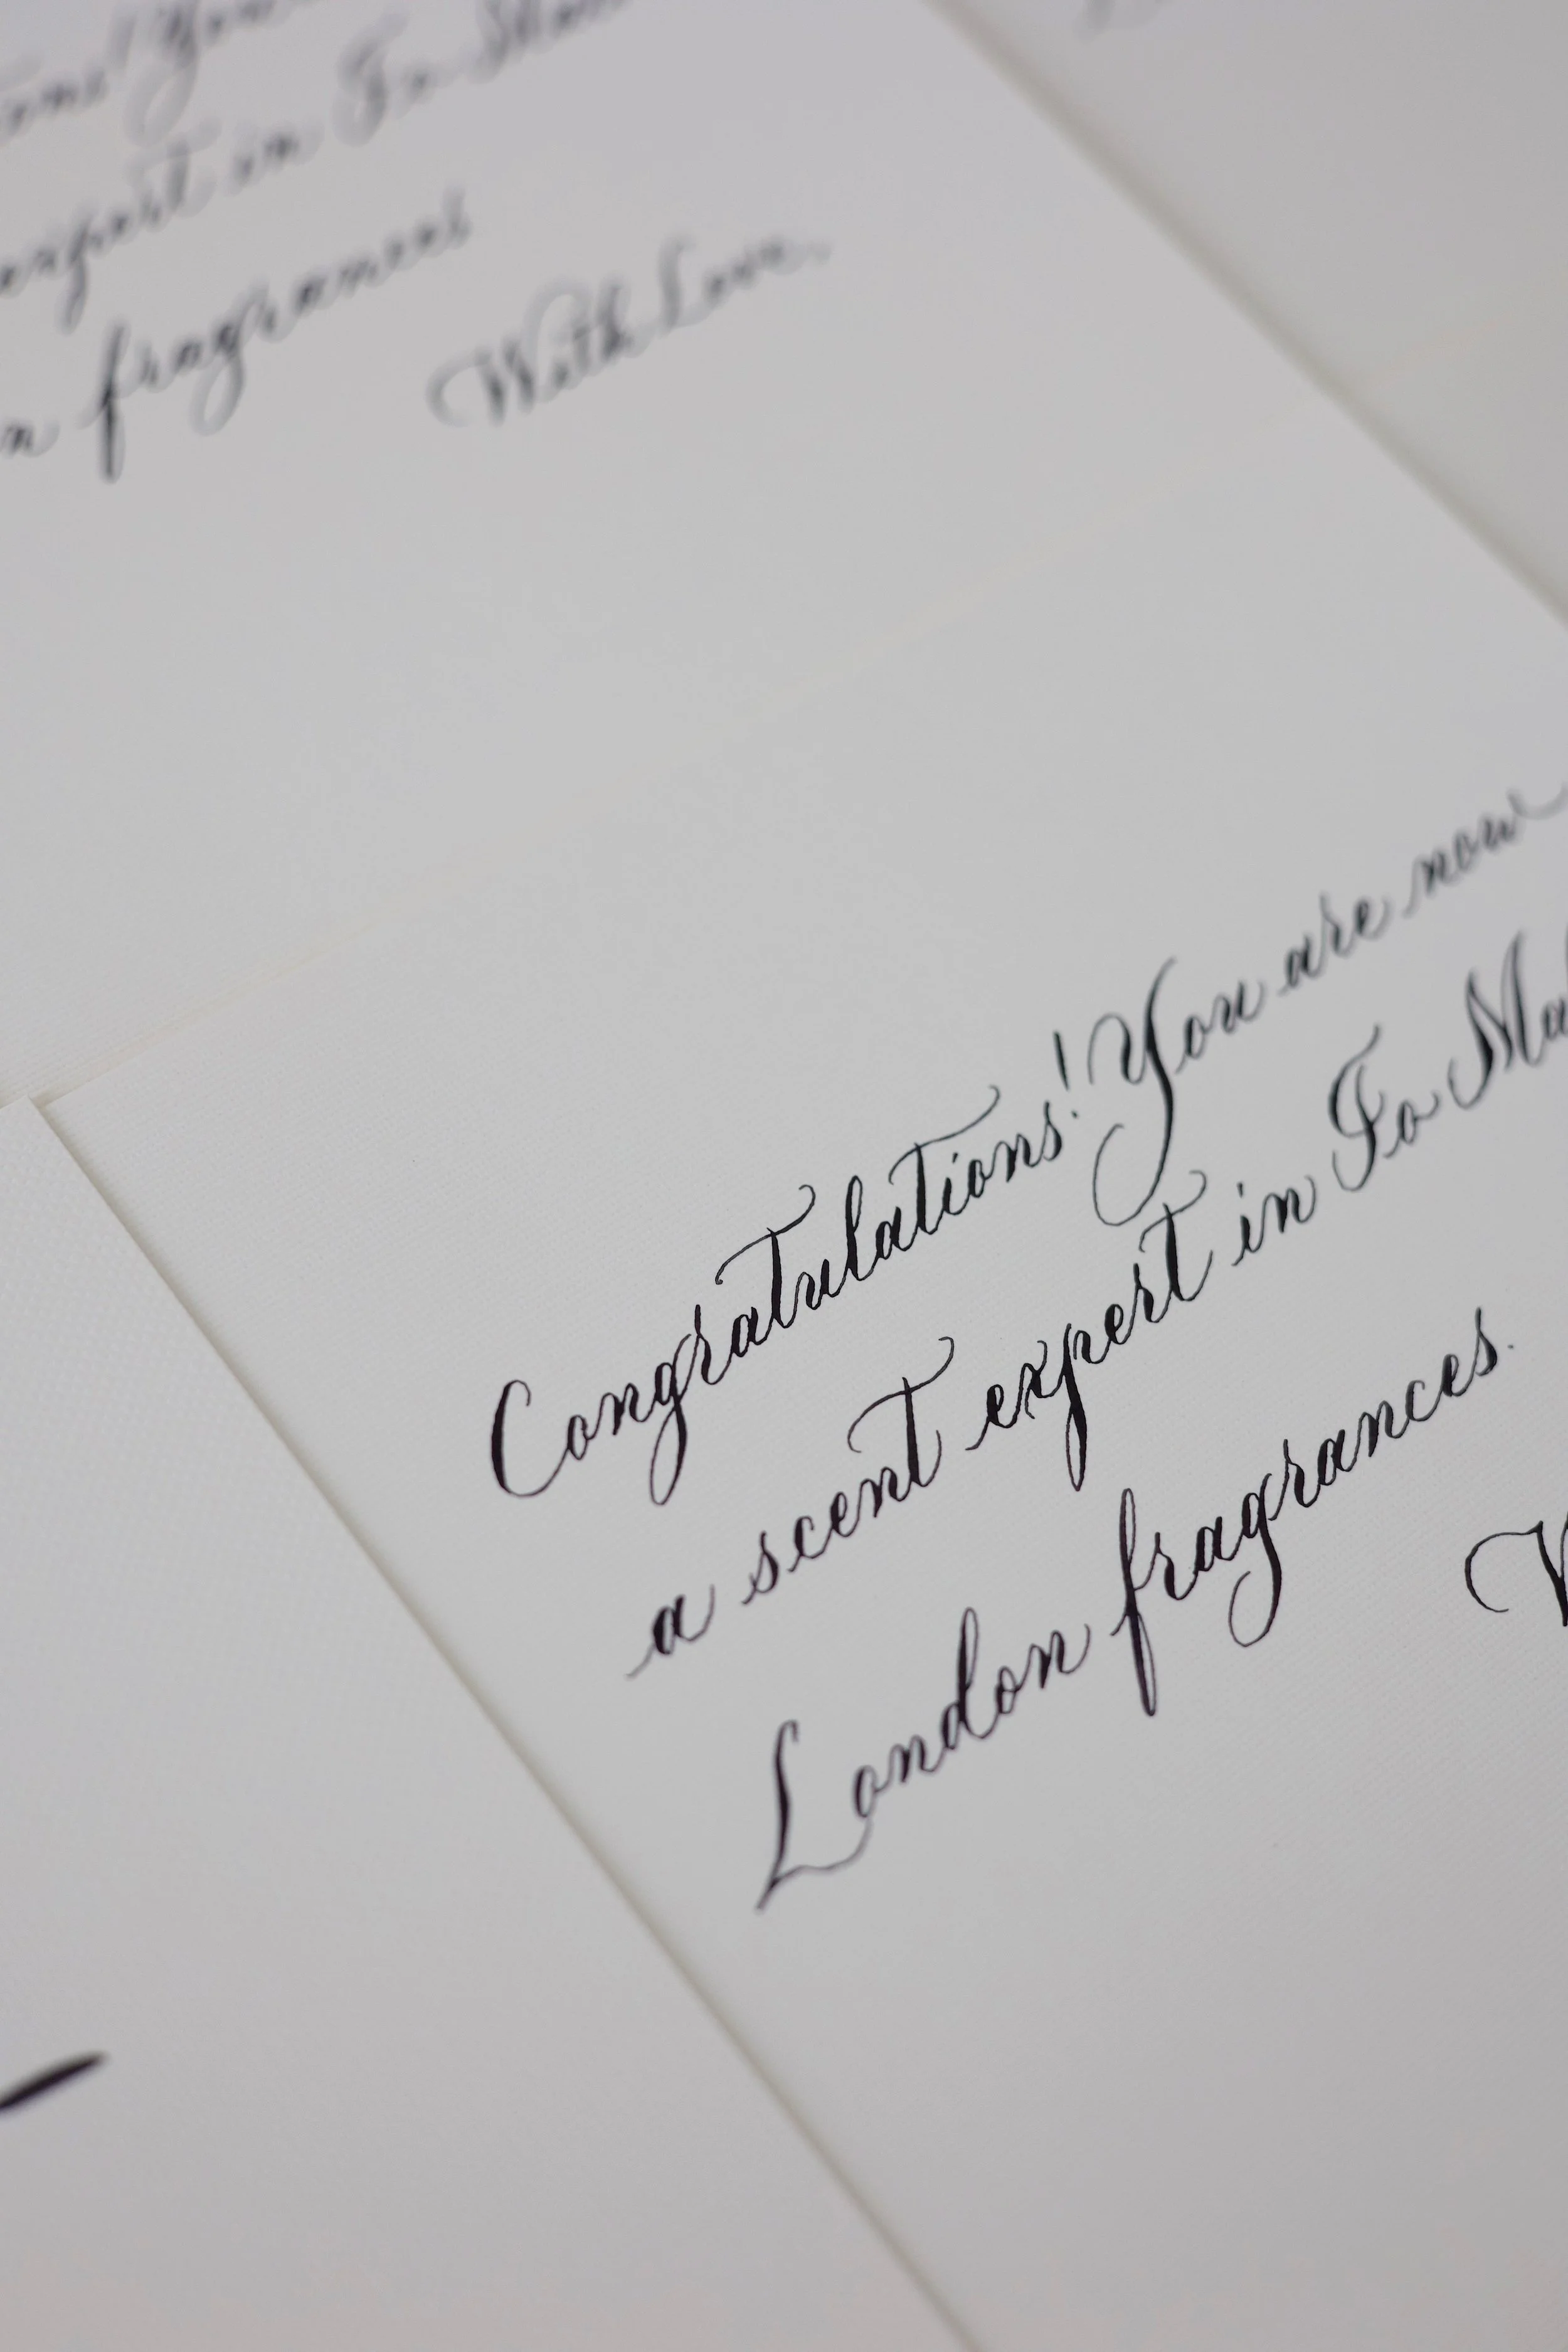 expert in Jo
fragrances
With Love,
Congratulations! You are now
a scent expert in Jo Mal
London fragrances.